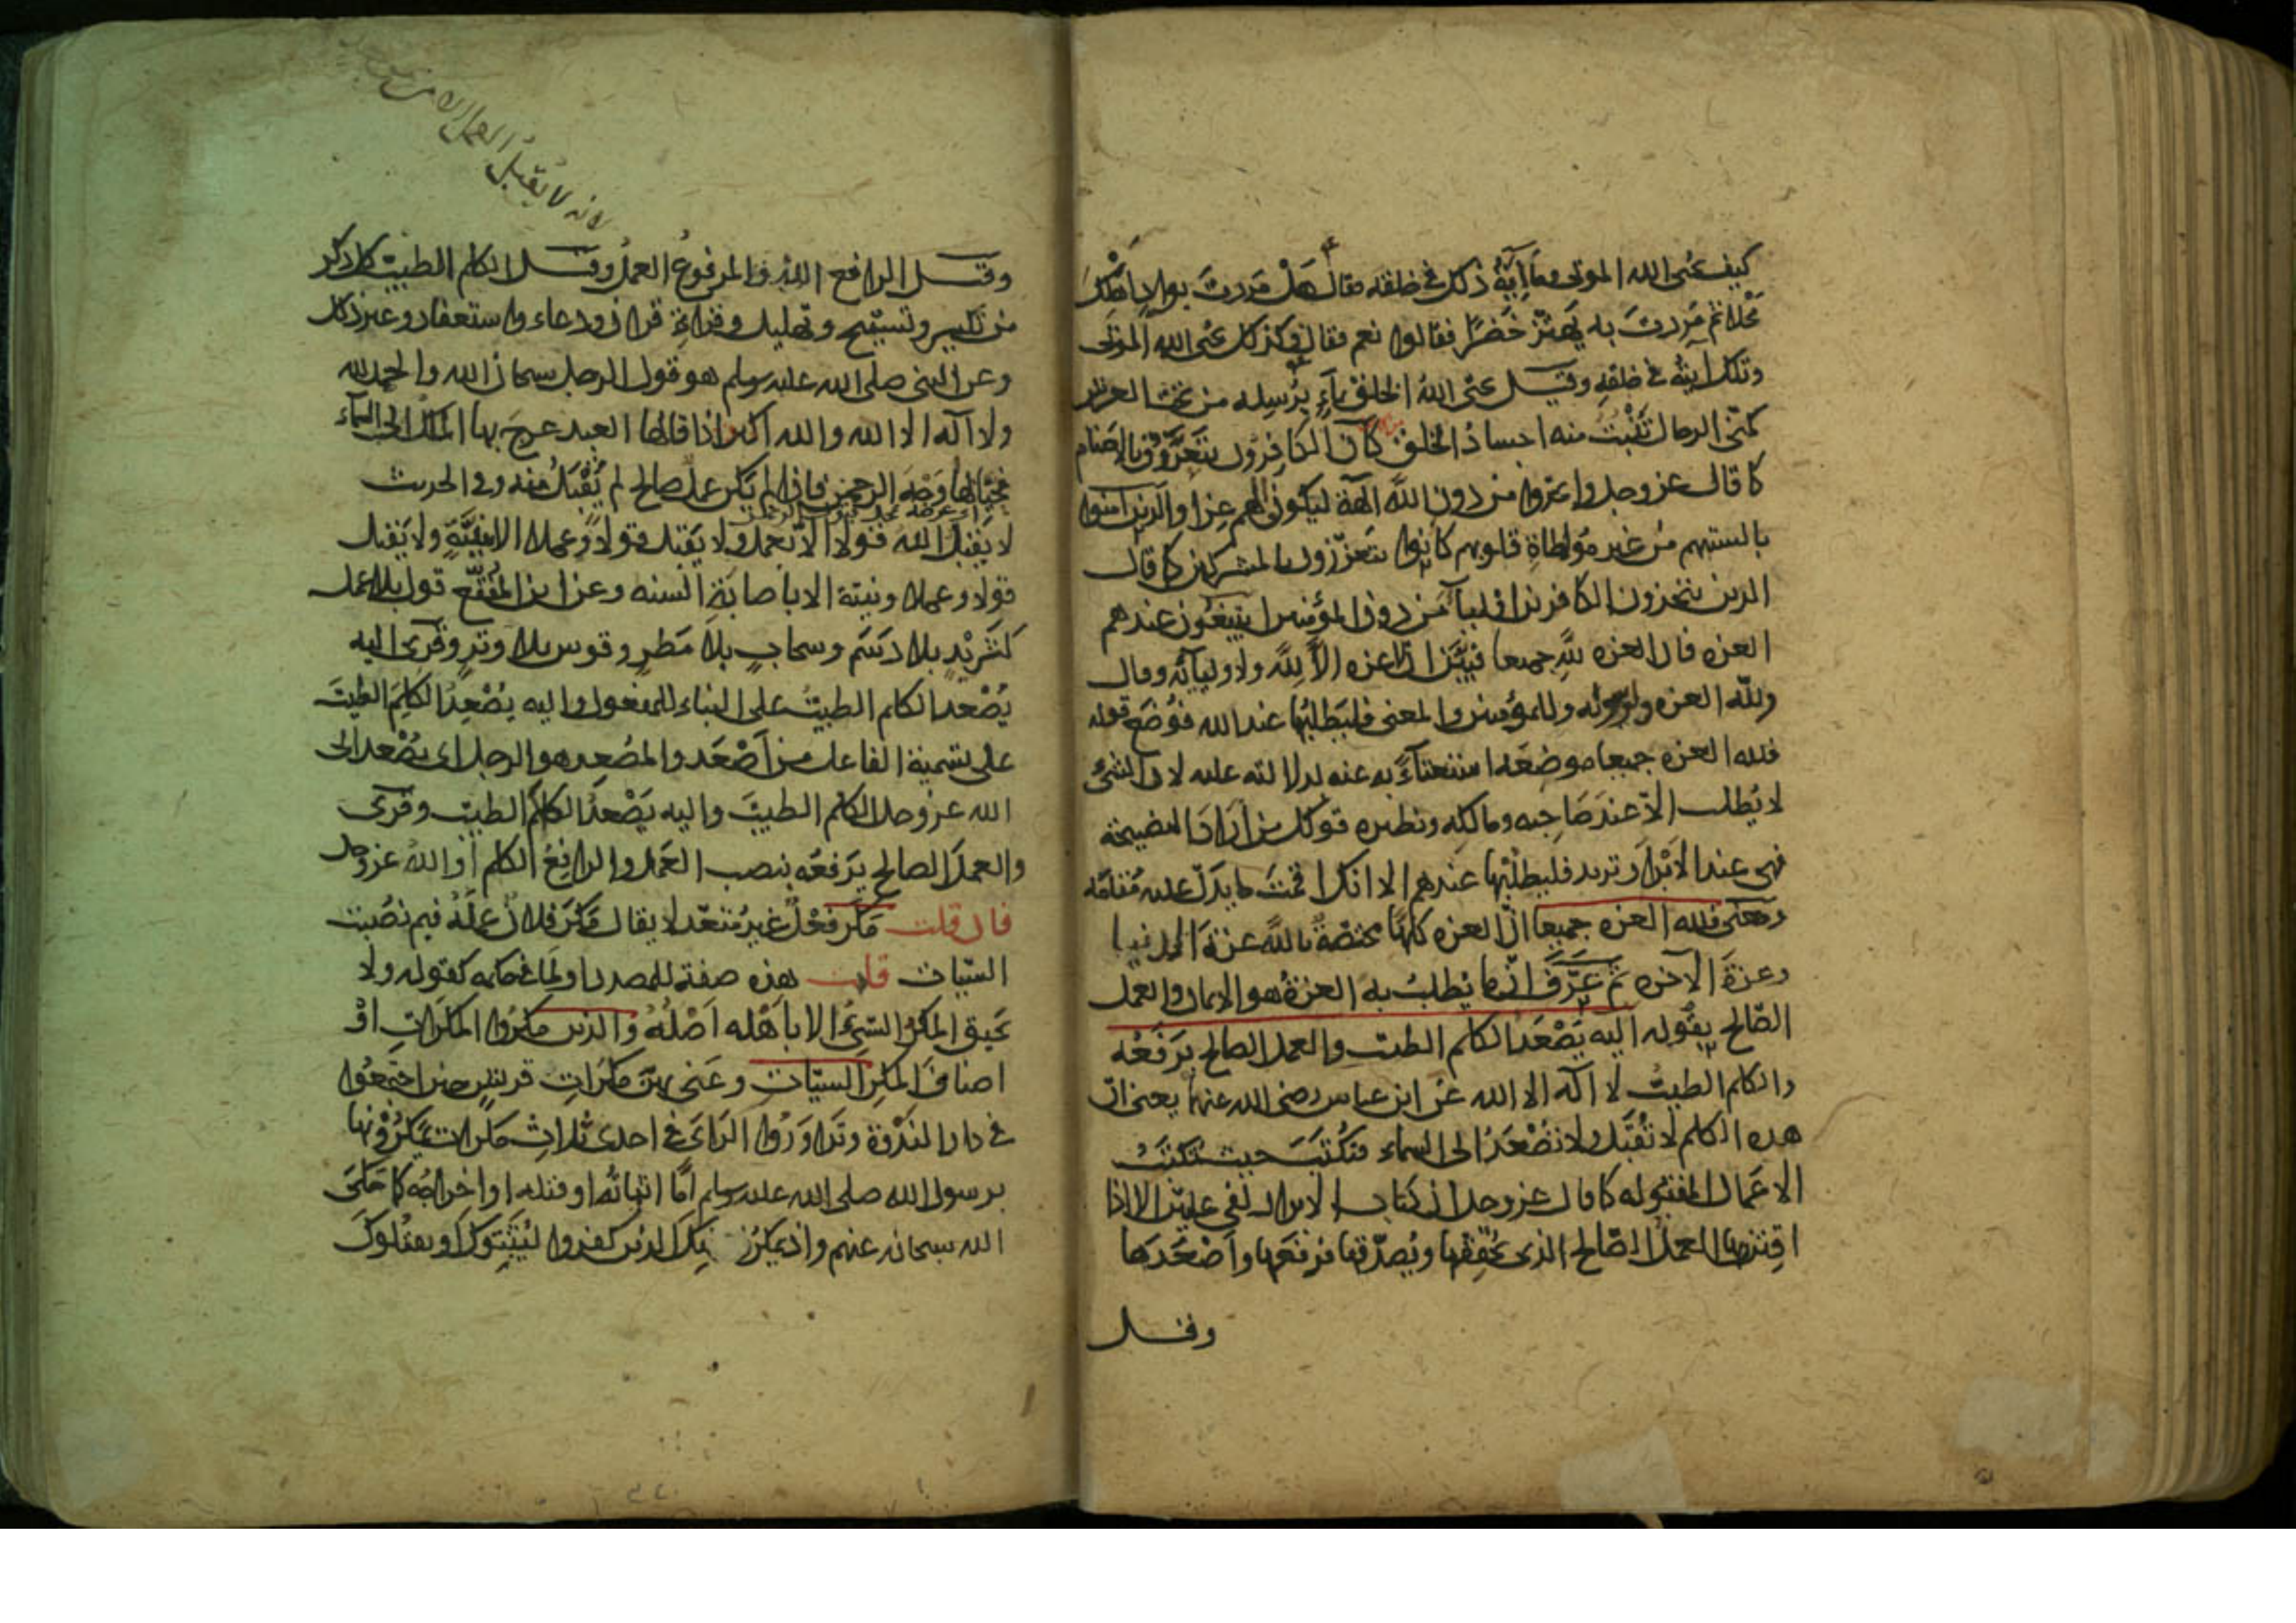 كيف يحيى الله الموتى وما آية ذلك في خلقه فقال هل مررت بوادي اهلك
محلا ثم مررت به يهتز خضرا فقالوا نعم فقال فكذلك يحيى الله الموتى
وتلك آيته في خلقه وقيل يحيى الله الخلق بماء يرسله من تحت العرش
كمنى الرجال تنبت منه اجساد الخلق كان الكافرون يتعززون بالاصنام
كما قال عز وجل واتخذوا من دون الله آلهة ليكونوا لهم عزا والذين آمنوا
بالسنتهم من غير مواطاة قلوبهم كانوا يتعززون بالمشركين كما قال
الذين يتخذون الكافرين اولياء من دون المؤمنين ايبتغون عندهم
العزه فان العزه لله جميعا فبين ان لا عزه الا لله ولاوليائه وقال
ولله العزه ولرسوله وللمؤمنين والمعنى فليطلبها عند الله فوضع قوله
فلله العزه جميعا موضعه استغناء به عنه لدلالته عليه لان الشئ
لا يطلب الا عند صاحبه ومالكه ونظيره قولك من اراد النصيحة
فهى عند الابرار تريد فليطلبها عندهم الا انك اقمت ما يدل عليه مقامه
ومعنى فلله العزه جميعا ان العزه كلها مختصة بالله عزة الدنيا
وعزة الآخره ثم عرف ان ما يطلب به العزة هو الايمان والعمل
الصالح بقوله اليه يصعد الكلم الطيب والعمل الصالح يرفعه
والكلم الطيب لا اله الا الله عن ابن عباس رضى الله عنهما يعنى ان
هذه الكلم لا تقبل ولا تصعد الى السماء فتكتب حيث تكتب
الاعمال المقبوله كما قال عز وجل ان كتاب الابرار لفى عليين الا اذا
اقترن بها العمل الصالح الذى يحققها ويصدقها فرفعها واصعدها
وقيل
لانه لا يقبل العمل الا من
وقيل الرافع الله والمرفوع العمل وقيل الكلم الطيب كل ذكر
من تكبير وتسبيح وتهليل وقراءة قران ودعاء واستغفار وغير ذلك
وعن النبى صلى الله عليه وسلم هو قول الرجل سبحان الله والحمد لله
ولا اله الا الله والله اكبر اذا قالها العبد عرج بها الملك الى السماء
فحيا بها وجه الرحمن فاذا لم يكن عمل صالح لم يقبل منه وفى الحديث
لا يقبل الله قولا الا بعمل ولا يقبل قولا وعملا الا بنية ولا يقبل
قولا وعملا ونية الا باصابة السنه وعن ابن المقفع قول بلا عمل
كثريد بلا دسم وسحاب بلا مطر وقوس بلا وتر وقرئ اليه
يصعد الكلم الطيب على البناء للمفعول واليه يصعد الكلم الطيب
على تسمية الفاعل من اصعد والمصعد هو الرجل اى يصعد الى
الله عز وجل الكلم الطيب واليه يصعد الكلام الطيب وقرئ
والعمل الصالح يرفعه بنصب العمل والرافع الكلم او الله عز وجل
فان قلت مكر فعل غير متعد لا يقال مكر فلان عمله فبم نصبت
السيات قلت هذه صفة للمصدر او لما فى حكمه كقوله ولا
يحيق المكر السيئ الا باهله اصله والذين مكروا المكرات او
اصناف المكر السيات وعنى بهن مكرات قريش حين اجتمعوا
في دار الندوة وتداوروا الراى في احدى ثلاث مكرات يمكرونها
برسول الله صلى الله عليه وسلم اما اثباته او قتله او اخراجه كما حكى
الله سبحانه عنهم واذ يمكر بك الذين كفروا ليثبتوك او يقتلوك